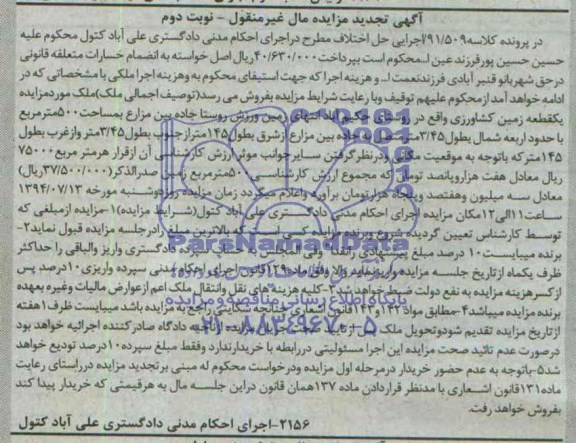 آگهی تجدید مزایده مال غیرمنقول - نوبت دوم
در پرونده کلاسه ۹۱/۵۰۹ اجرایی حل اختلاف مطرح دراجرای احکام مدنی دادگستری علی آباد کتول محکوم علیه
حسین حسین پورفرزند عین ا...محکوم است بپرداخت ۴۰/۶۳۰/۰۰۰ریال اصل خواسته به انضمام خسارات متعلقه قانونی
درحق شهربانو قنبر آبادی فرزندنعمت ا... و هزینه اجرا که جهت استیفای محکوم به وهزینه اجرا ملکی با مشخصاتی که در
ادامه خواهد آمد ازمحکوم علیهم توقیف وبا رعایت شرایط مزایده بفروش می رسد(توصیف اجمالی ملک)ملک موردمزایده
یکقطعه زمین کشاورزی واقع در روستای حکیم آباد انتهای زمین ورزش روستا جاده بین مزارع بمساحت ۵۰۰مترمربع
با حدود اربعه شمال بطول۳/۴۵متر جاده بین مزارع ازشرق بطول۱۴۵متر ازجنوب بطول۳/۴۵متر وازغرب بطول
۱۴۵متر که باتوجه به موقعیت مکانی ودرنظرگرفتن سایرجوانب موثر ارزش کارشناسی آن ازقرار هرمتر مربع ۷۵۰۰۰
ریال معادل هفت هزاروپانصد تومان که مجموع ارزش کارشناسی ۵۰۰مترمربع زمین صدرالذکر(۳۷/۵۰۰/۰۰۰ریال)
معادل سه میلیون وهفتصد وپنجاه هزارتومان برآورد واعلام میگردد زمان مزایده روزدوشنبه مورخه ۱۳۹۴/۰۷/۱۳
ساعت۱۱الی۱۲مکان مزایده اجرای احکام مدنی دادگستری علی آباد کتول(شرایط مزایده)۱-مزایده ازمبلغی که
توسط کارشناس تعیین گردیده شروع وبرنده مزایده کسی است که بالاترین مبلغ رادرجلسه مزایده قبول نماید۲-
برنده میبایست۱۰ درصد مبلغ پیشنهادی رانقدا وفی المجلس به حساب سپرده دادگستری واریز والباقی را حداکثر
ظرف یکماه ازتاریخ جلسه مزایده واریزنماید والا وفق ماده ۱۲۹قانون اجرای احکام مدنی سپرده واریزی۱۰درصد پس
ازکسرهزینه مزایده به نفع دولت ضبط خواهد شد۳-کلیه هزینه های نقل وانتقال ملک اعم ازعوارض مالیات وغیره بعهده
برنده مزایده میباشد۴-مطابق مواد۱۴۲و۱۴۳قانون اشعاری چنانچه شکایتی راجع به مزایده باشد میبایست ظرف۱هفته
ازتاریخ مزایده تقدیم شودوتحویل ملک
دادگاه صادرکننده اجرائیه خواهد بود
درصورت عدم تائید صحت مزایده این اجرا مسئولیتی دررابطه با خریدارندارد وفقط مبلغ سپرده۱۰درصد تودیع خواهد
شد۵-باتوجه به عدم حضور خریدار درمرحله اول مزایده ودرخواست محکوم له مبنی برتجدید مزایده درراستای رعایت
ماده۱۳۱قانون اشعاری با مدنظر قراردادن ماده ۱۳۷همان قانون دراین جلسه مال به هرقیمتی که خریدار پیدا کند
بفروش خواهد رفت.
۲۱۵۶-اجرای احکام مدنی دادگستری علی آباد کتول
ParsNamadData
پایگاه اطلاع رسانی مناقصه و مزایده
۰۲۱-۸۸۳۴۹۶۷۰-۵